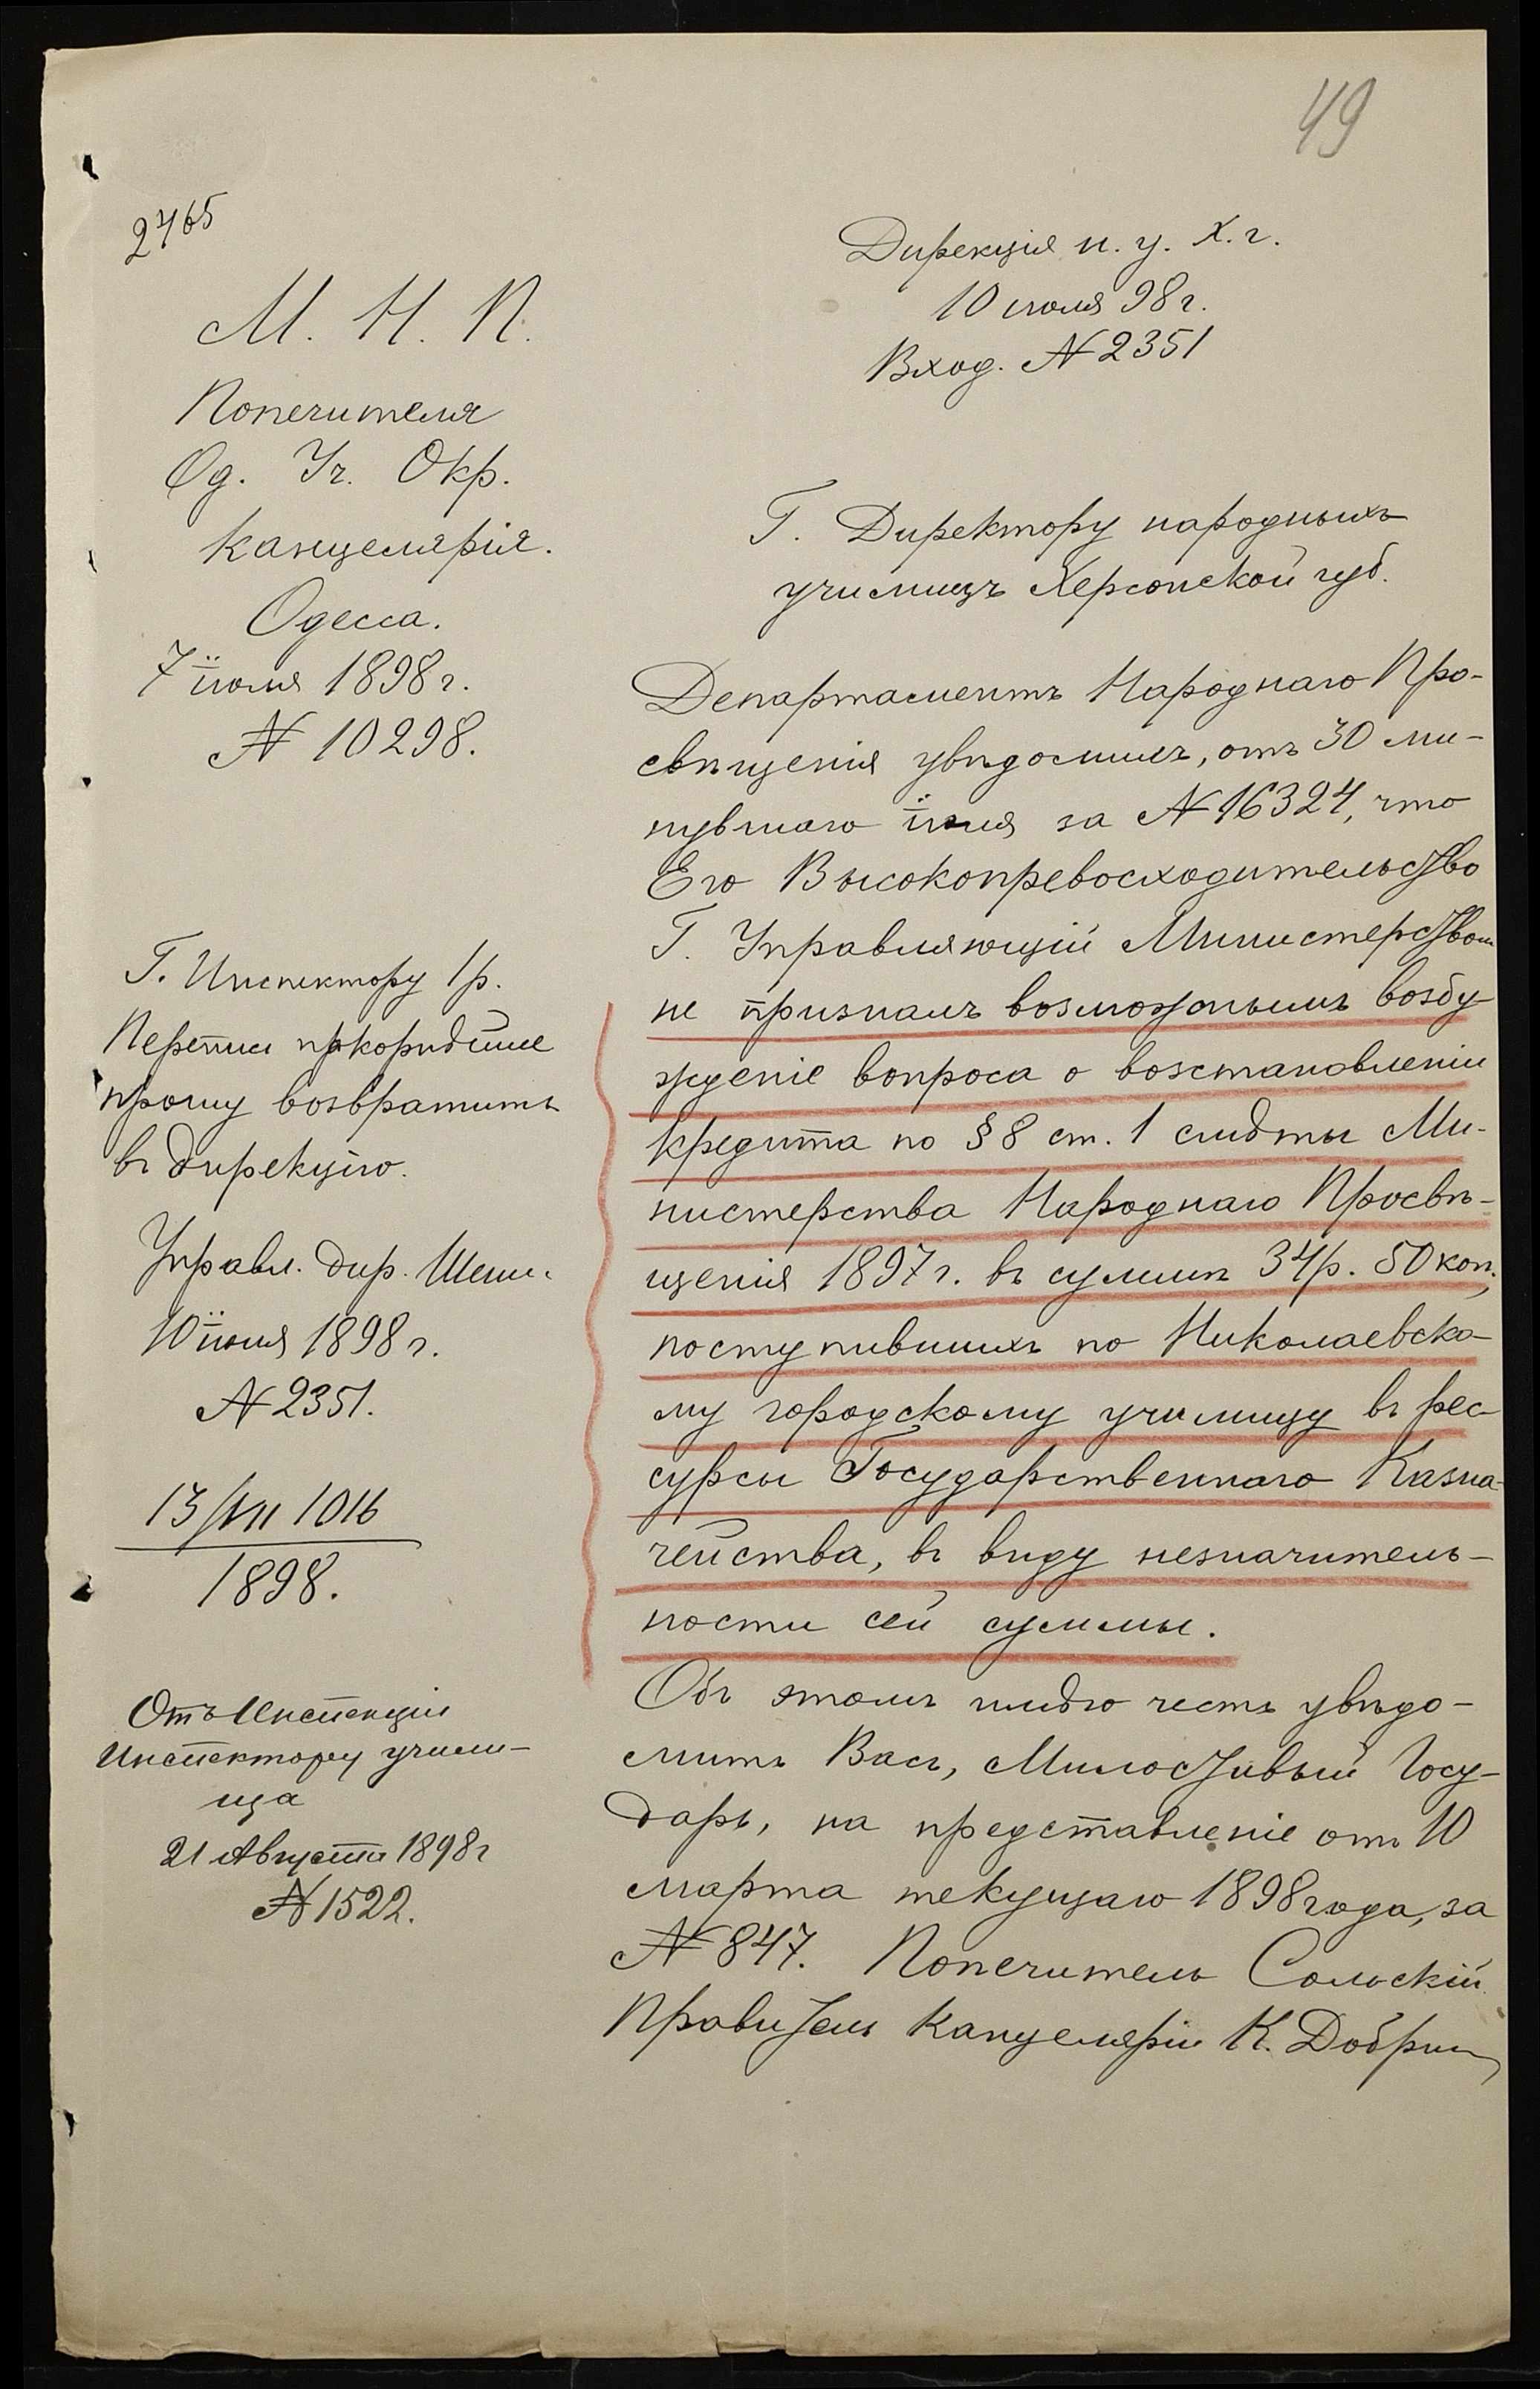 49
2465
М. Н. П.
Попечителя
Од. Уч. Окр.
Канцелярія.
Одесса.
7 іюля 1898 г.
№ 10298.
Г. Инспектору 1 р.
прошу возвратить
въ дирекцію.
Управл. дир.
10 іюля 1898 г.
№ 2351.
13/VII 1016
1898.
Отъ Инспекціи
Инспектору учили-
ща
21 Августа 1898 г
№ 1522.
Дирекція н. у. Х. г.
10 іюля 98 г.
Вход. № 2351
Г. Директору народныхъ
училищъ Херсонской губ.
Департаментъ Народнаго Про-
свѣщенія увѣдомилъ, отъ 30 ми-
нувшаго іюня за № 16324, что
Его Высокопревосходительство
Г. Управляющій Министерствомъ
не призналъ возможнымъ возбу-
жденіе вопроса о возстановленіи
кредита по § 8 ст. 1 смѣты Ми-
нистерства Народнаго Просвѣ-
щенія 1897 г. въ суммѣ 34 р. 50 коп.,
поступившихъ по Николаевско-
му городскому училищу въ рес-
сурсы Государственнаго Казна-
чейства, въ виду незначитель-
ности сей суммы.
Объ этомъ имѣю честь увѣдо-
мить Васъ, Милостивый Госу-
дарь, на представленіе отъ 10
марта текущаго 1898 года, за
№ 847. Попечитель Сольскій
Правитель Канцеляріи К.